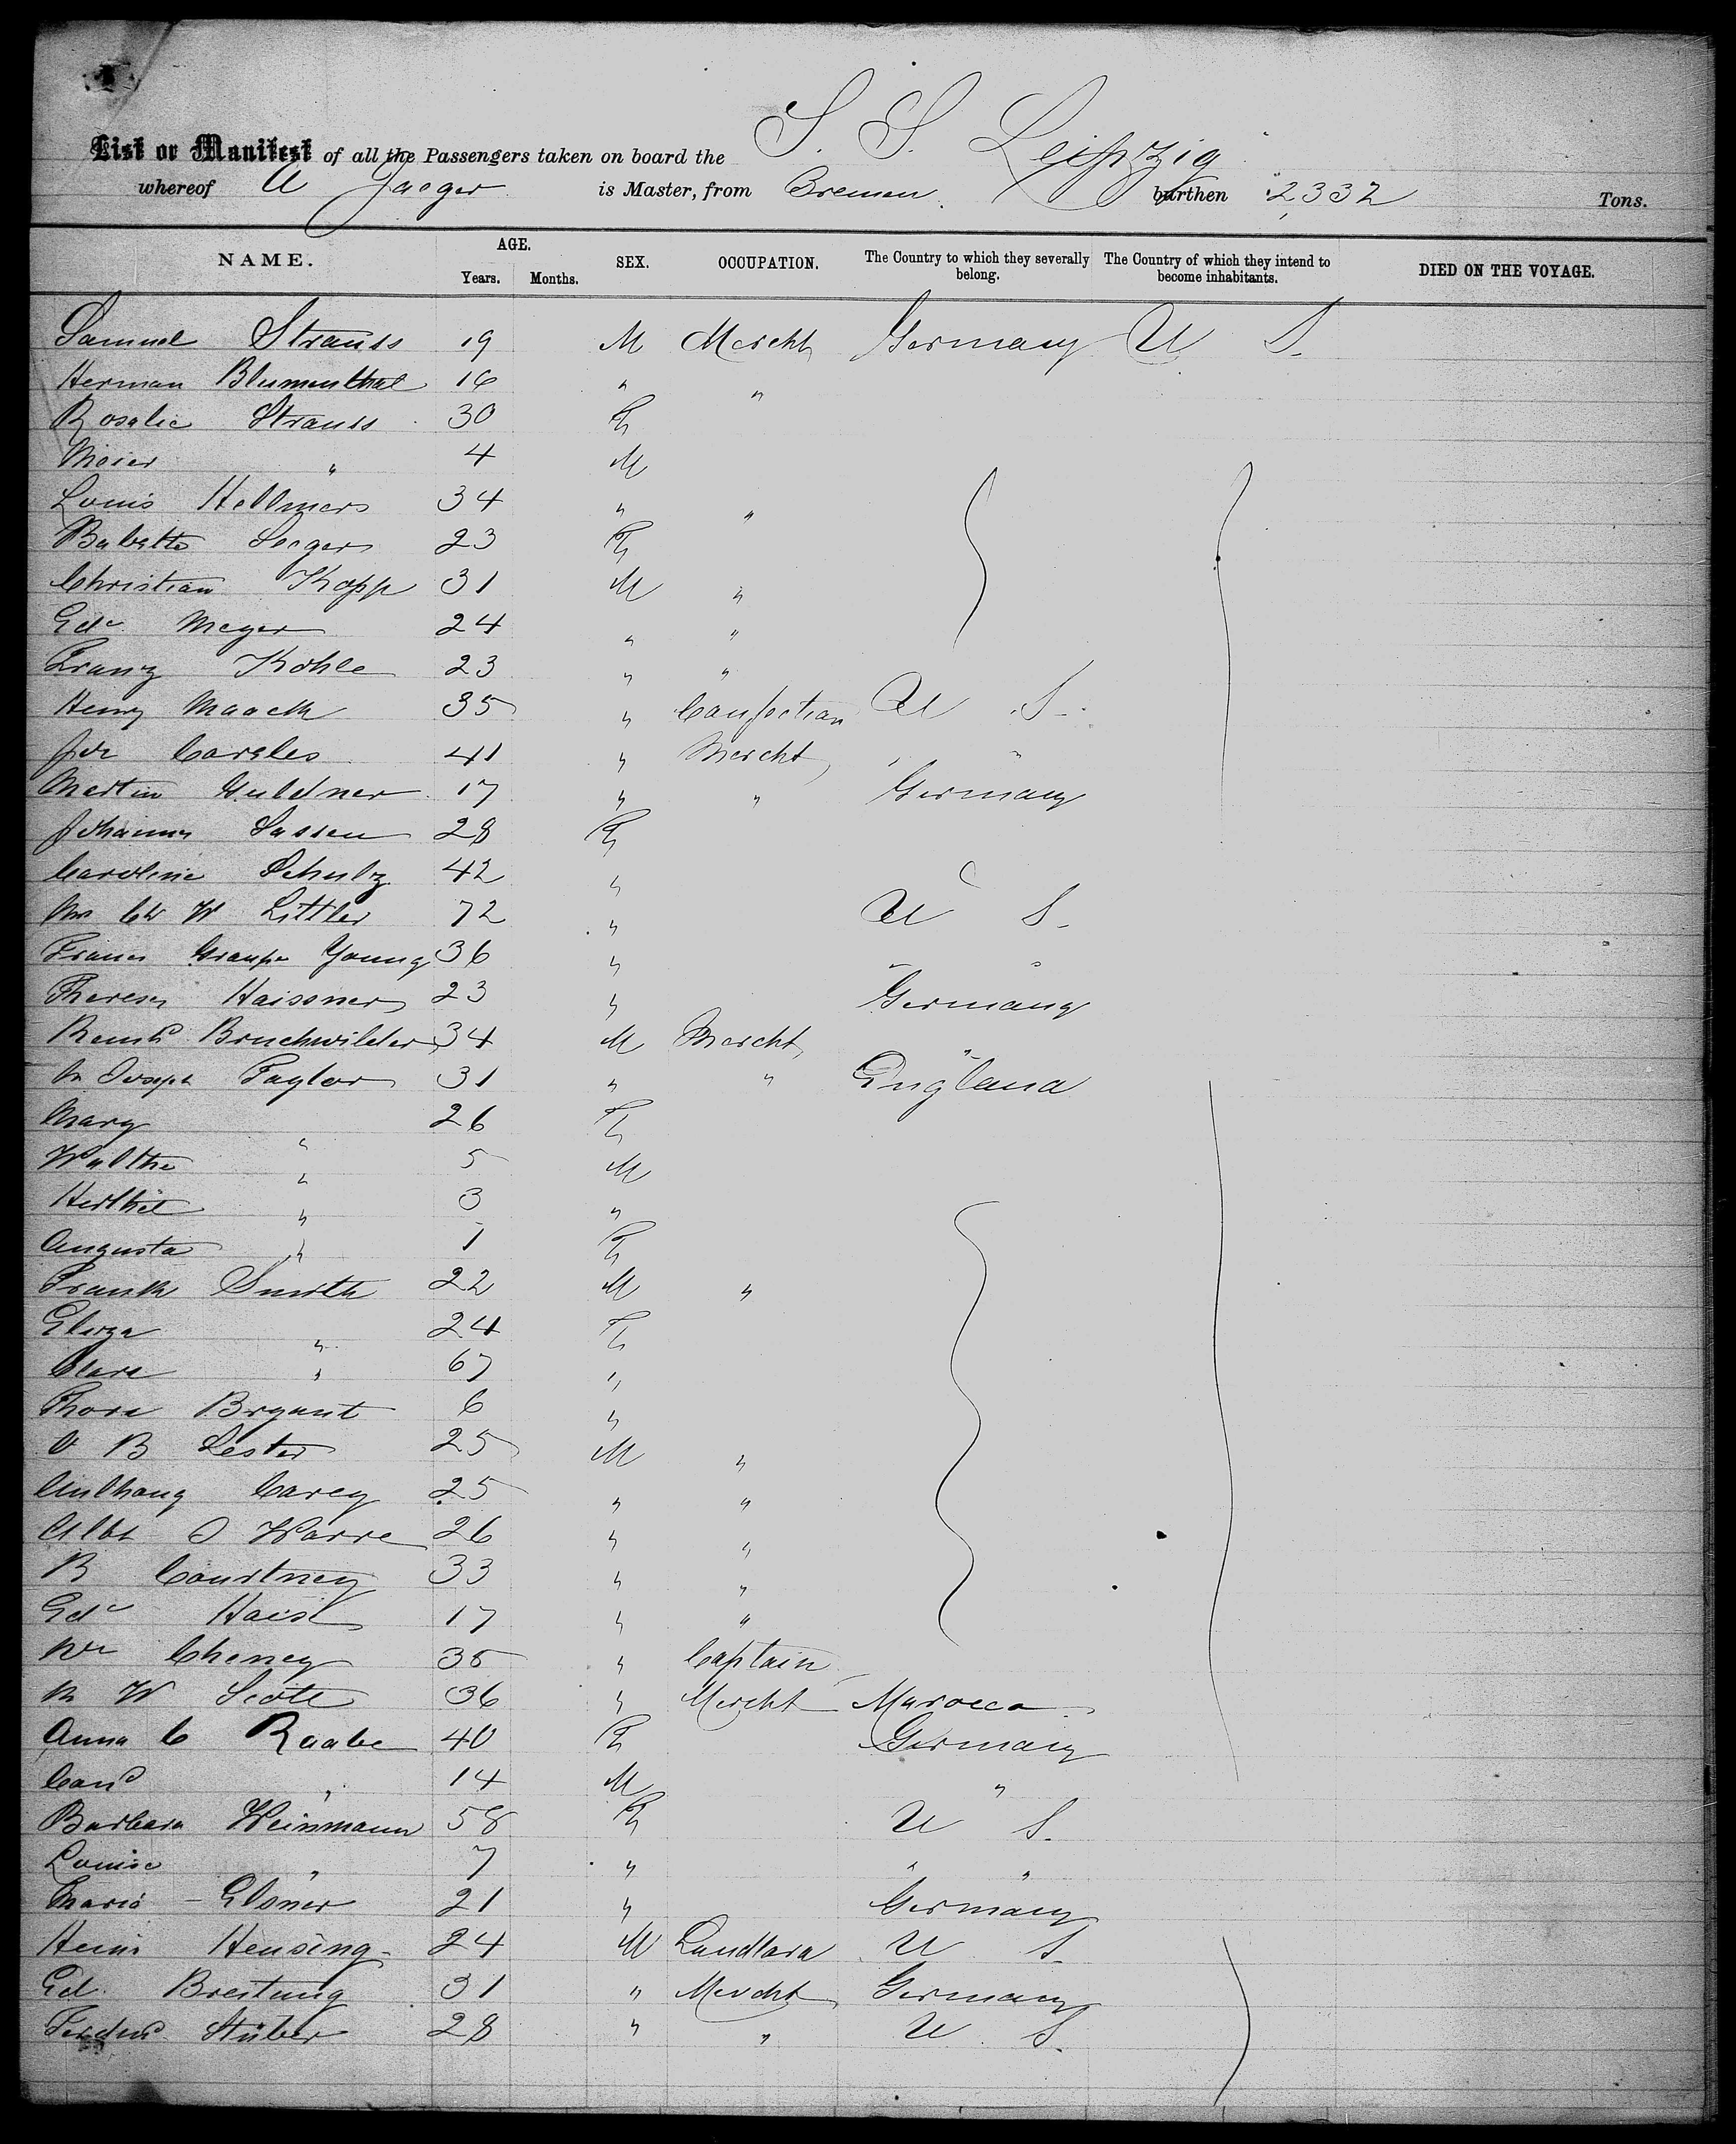 S. S. Leipzig
List or Manifest of all the Passengers taken on board the
whereof A Jaeger is Master, from Bremen burthen 2332 Tons.
NAME. AGE. Years. Months. SEX. OCCUPATION. The Country to which they severally belong. The Country of which they intend to become inhabitants. DIED ON THE VOYAGE.
Samuel Strauss 19 M Mercht Germany U S.
Herman Blumenthal 16 " "
Rosalie Strauss 30 F
Meier " 4 M
Louis Hellmers 34 " "
Babette Seeger 23 F
Christian Kopp 31 M "
Edu Meyer 24 " "
Franz Kohle 23 " "
Henry Maack 35 " Confection U S.
41 " Mercht "
Martin Guldner 17 " " Germany
Johanna Sassen 28 F
Caroline Schulz 42 "
W Littler 72 " U S.
Young 36 " " "
Therese Haissner 23 " Germany
Bruchwilder 34 M Mercht "
Joseph Taylor 31 " " England
Mary " 26 F
Walther " 5 M
" 3 "
Augusta " 1 F
Frank Smith 22 M "
Eliza " 24 F
Clara " 67 "
Thora Bryant 6 "
B Lester 25 M "
Anthony Carey 25 " "
Albt Warre 26 " "
R Courtney 33 " "
Edu 17 " "
Cheney 35 " Captain
W Scott 36 " Mercht Marocco
Anna C Raabe 40 F Germany
" 14 M "
Barbara Weinmann 58 F U S.
Louise " 7 " " "
Maria Elsner 21 " Germany
Hensing 24 M U S.
Ed. Breitung 31 " Mercht Germany
Stuber 28 " " U S.